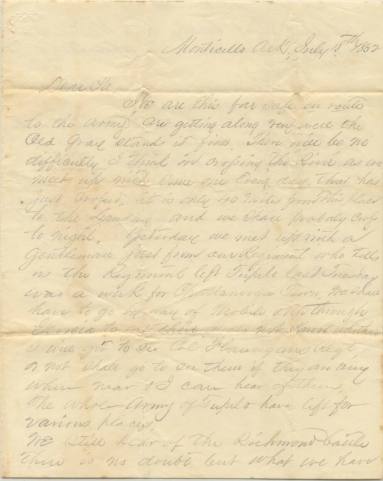 Monticello Ark, July 8th 1862
Dear Pa
We are this far safe on route
to the Army are getting along very well the
Old Gray stand it fine. There will be no
difficulty I think in crossing the River as we
meet up with some one every day that has
just crossed, it is only 30 miles from this place
to the and we shall probably cross
to night. Yesterday we met up with a
Gentleman just from our Regiment who tells
us the Regiment left Tupelo last Sunday
was a week for Chattanooga Tenn, we shall
have to go by way of Mobile through
to get there
we get to see Col regt
or not shall go to see them if they are any
where near & I can hear of them,
The whole Army of Tupelo have left for
various places,
We still hear of the Richmond battle
there is no doubt but what we have